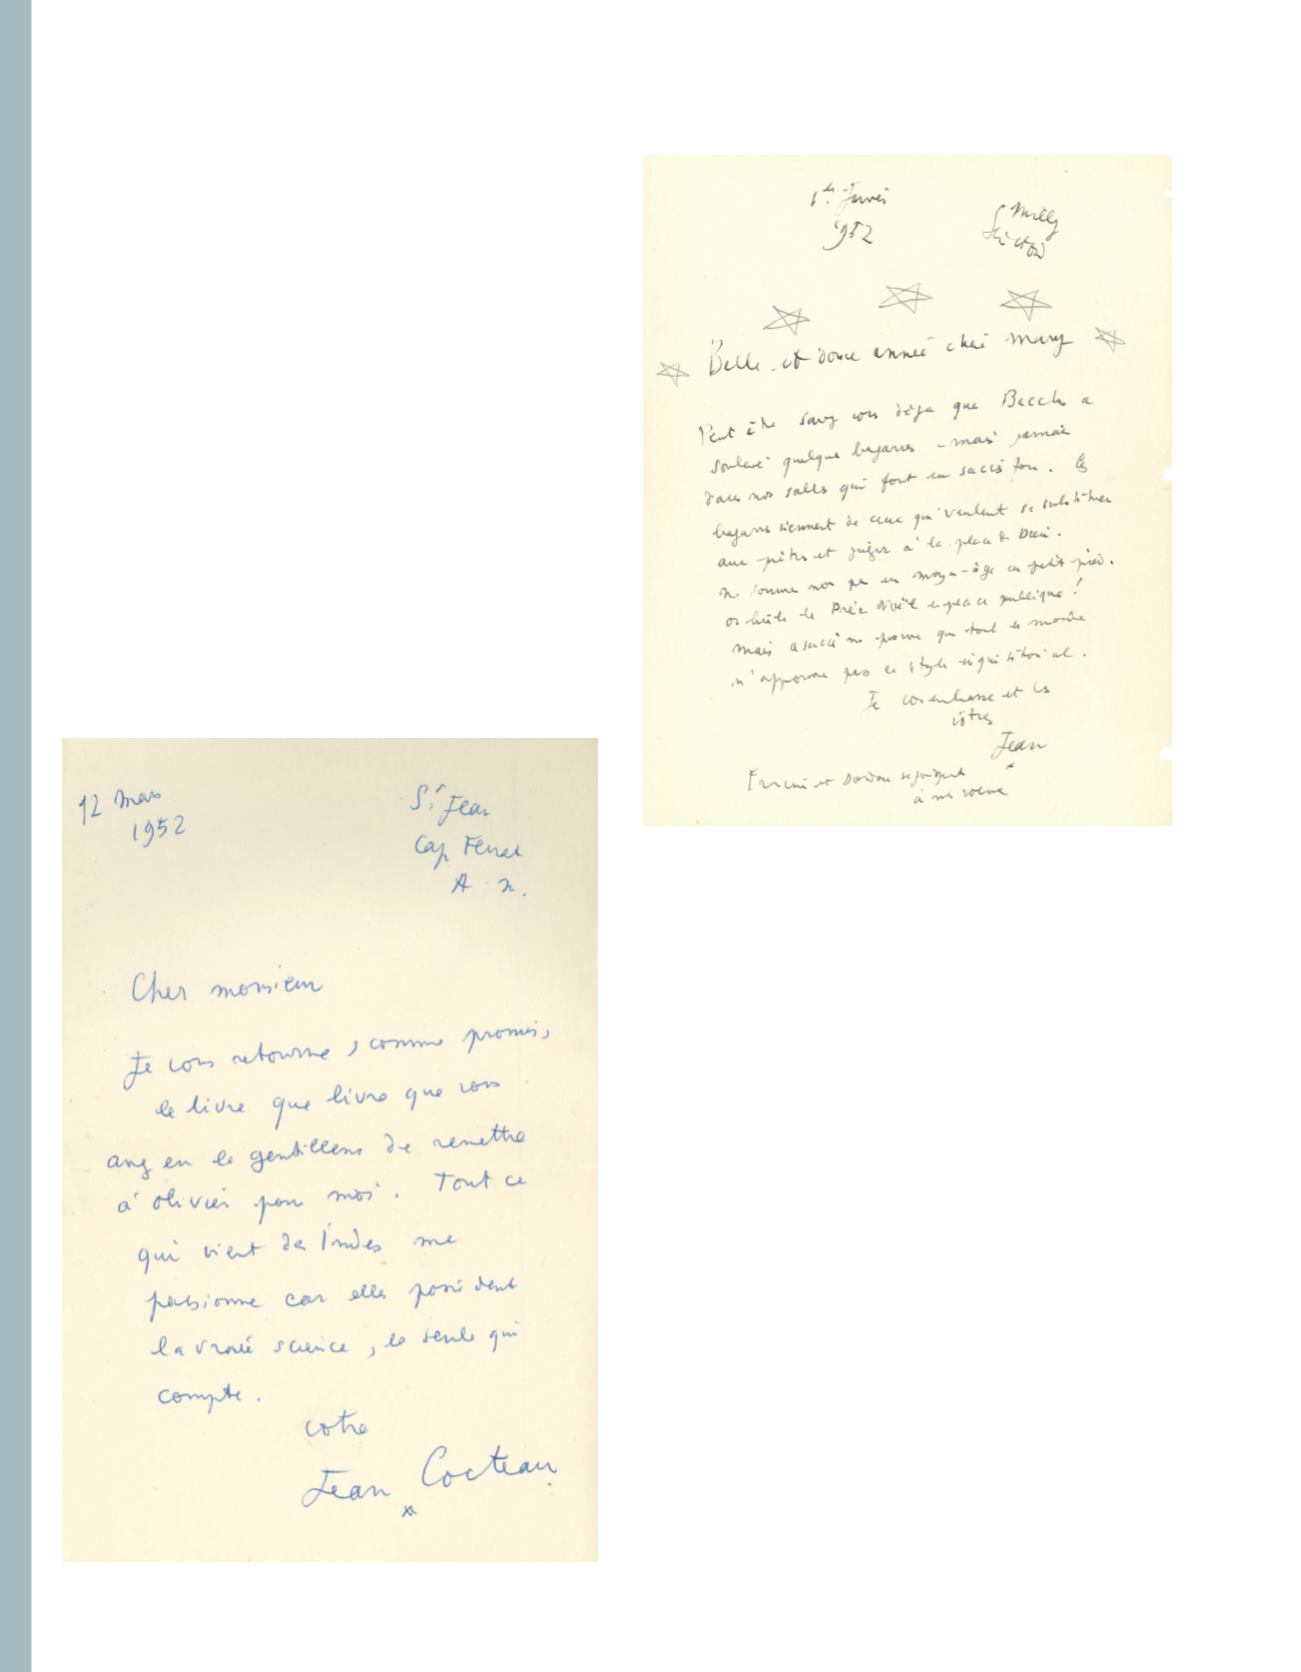 1er Janvier
1952
Milly
S. et O.
Belle et douce année chère Mary
Peut être savez vous déjà que Bacchus a
soulevé quelques bagarres - mais jamais
dans nos salles qui font un succès fou. Les
bagarres viennent de ceux qui veulent se substituer
aux prêtres et juger à la place de Dieu.
Ne sommes nous pas en moyen-âge au petit pied.
On brûle le Père Noël en place publique!
Mais ce succès me prouve que tout le monde
n'approuve pas ce style inquisitorial.
Je vous embrasse et les
vôtres
Jean
Francine et Doudou se joignent
à mes voeux
12 Mars
1952
St Jean
Cap Ferrat
A. M.
Cher monsieur
Je vous retourne, comme promis,
le livre que livre que vous
avez eu la gentillesse de remettre
à Olivier pour moi. Tout ce
qui vient des Indes me
passionne car elles possèdent
la vraie science, la seule qui
compte.
votre
Jean Cocteau